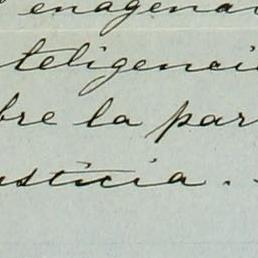 enagena
teligenci
bre la par
usticia. -